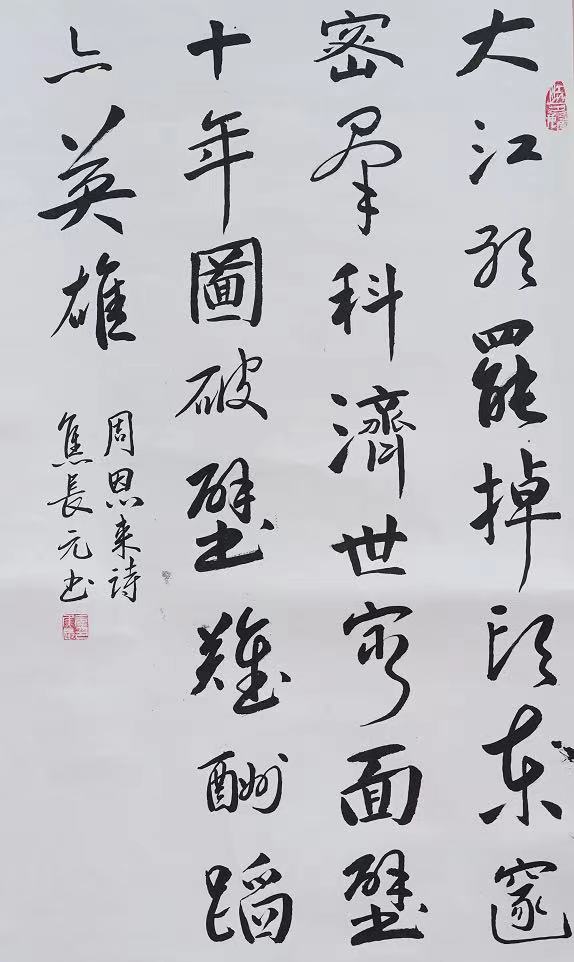 大江歌罷掉头東邃
密羣科濟世穷面壁
十年圖破壁難酬蹈
亦英雄
周恩来詩
焦長元书